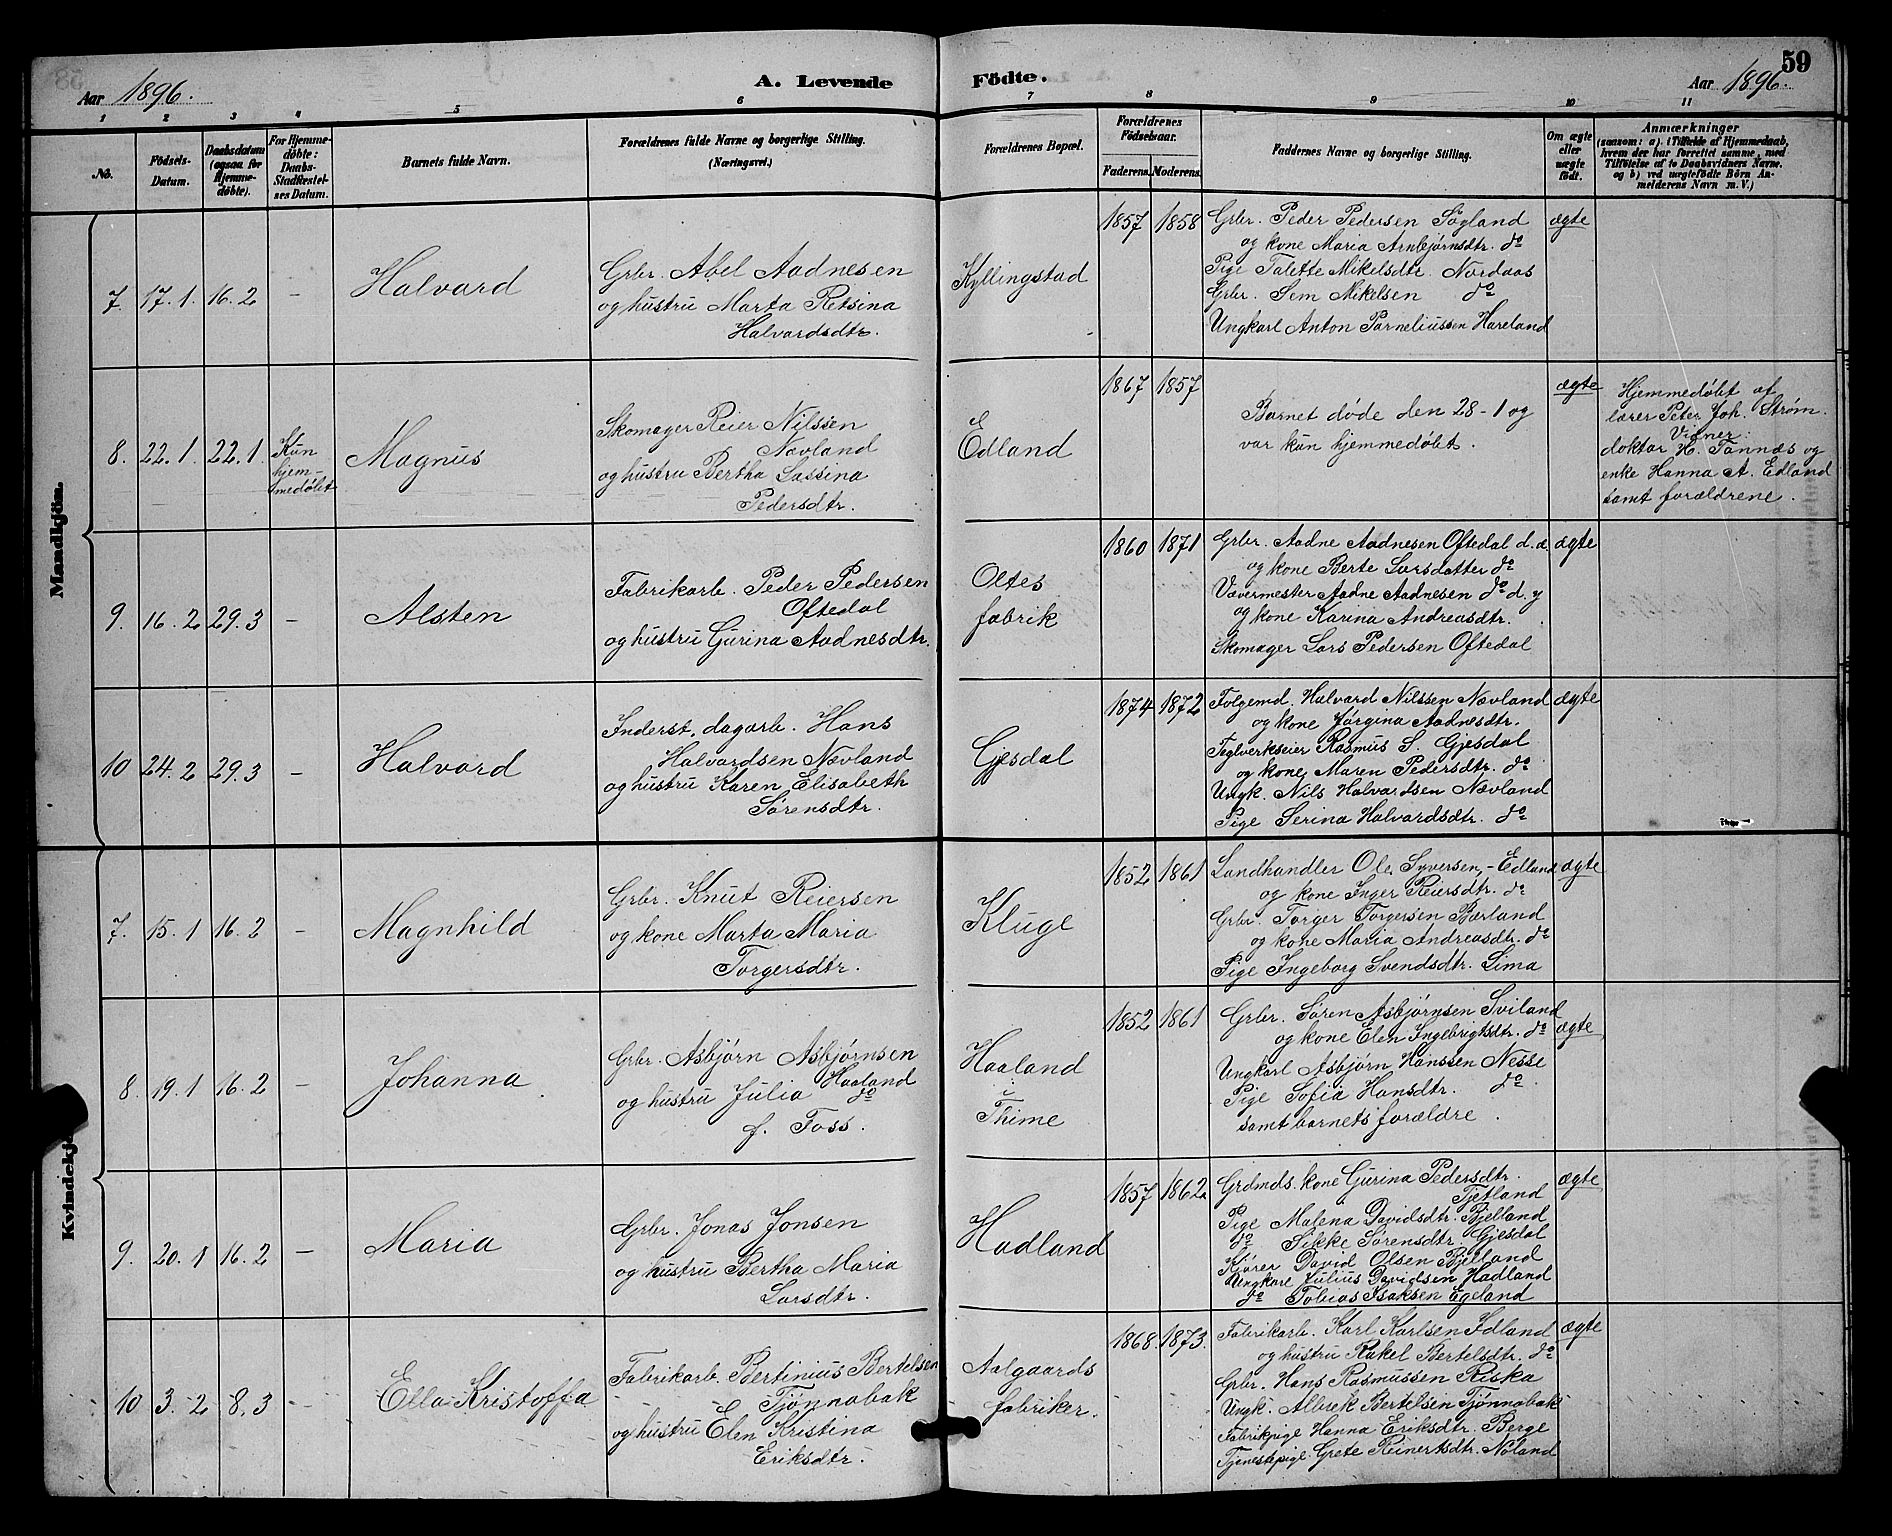 59
Aar 1896.
A. Levende Födte.
Aar 1896.
1 2 3 4 5 6 7 8 9 10 11
No.
Födsels-
Datum.
Daabsdatum
(ogsaa for
Hjemme-
döbte).
For Hjemme-
döbte:
Daabs-
Stadfæstel-
ses Datum.
Barnets fulde Navn.
Forældrenes fulde Navne og borgerlige Stilling.
(Næringsvei.)
Forældrenes Bopæl.
Forældrenes
Födselsaar.
Faderens. Moderens.
Faddernes Navne og borgerlige Stilling.
Om ægte
eller
uægte
født.
Anmærkninger
(saasom: a). i Tilfælde af Hjemmedaab,
hvem der har forrettet samme, med
Tilföielse af to Daabsvidners Navne,
og b) ved uægtefödte Börn An-
melderens Navn m. V.)
Mandkjön.
7. 17.1. 16.2 -
Halvard
Grbr. Abel Aadnesen
og hustru Marta Retsina
Halvardsdtr.
Kyllingstad
1857 1858
Grbr. Peder Pedersen Søyland
og kone Maria Arnbjørnsdtr. do
Pige Talette Mikelsdtr. Nordaas
Grbr. Sem Mikelsen do
Ungkarl Anton Parneliussen Hareland
ægte
8. 22.1. 22.1.
Kun
hjem-
medøbt
Magnus
Skomager Reier Nilssen
Nævland
og hustru Bertha Sassina
Pedersdtr.
Edland
1867 1857
Barnet døde den 28-1 og
var kun hjemmedøbt.
ægte
Hjemmedøbt af
lærer Peter Joh. Strøm.
Vidner:
doktor H. Tannæs og
enke Hanna A. Edland
samt forældrene.
9. 16.2 29.3 -
Alsten
Fabrikarb. Peder Pedersen
Oftedal
og hustru Gurina Aadnesdtr.
Oltes
fabrik
1860 1871
Grbr. Aadne Aadnesen Oftedal d.æ.
og kone Berte Larsdatter do
Vævermester Aadne Aadnesen do d.y
og kone Karina Andreasdtr.
Skomager Lars Pedersen Oftedal
ægte
10 24.2 29.3 -
Halvard
Inderst, dagarb. Hans
Halvardsen Nævland
og hustru Karen Elisabeth
Sørensdtr.
Gjesdal
1874 1872
Folgemd. Halvard Nilssen Nævland
og kone Jørgina Aadnesdtr.
Teglverkseier Rasmus S. Gjesdal
og kone Maren Pedersdtr. do
Ungk. Nils Halvardsen Nævland
Pige Serina Halvardsdtr. do
ægte
Kvindekj
7. 15.1 16.2 -
Magnhild
Grbr. Knut Reiersen
og kone Marta Maria
Torgersdtr.
Kluge
1852 1861
Landhandler Ole Syversen - Edland
og kone Inger Reiersdtr. do
Grbr. Torger Torgersen Bærland
og kone Maria Andreasdtr. do
Pige Ingeborg Svendsdtr. Lima
ægte
8. 19.1 16.2 -
Johanna
Grbr. Asbjørn Asbjørnsen
Haaland
og hustru Julia do
f. Foss.
Haaland
i
Thime
1852 1861
Grbr. Søren Asbjørnsen Sviland
og kone Elen Ingebrigtsdtr. do
Ungkarl Asbjørn Hanssen Nesse
Pige Sofia Hansdtr. do
samt barnets forældre.
ægte
9. 20.1 16.2 -
Maria
Grbr. Jonas Jonsen
og hustru Bertha Maria
Larsdtr.
Hadland
1857 1862
Grdmds. kone Gurina Pedersdtr.
Tjetland
Pige Malena Davidsdtr. Bjelland
do Sikke Sørensdtr. Gjesdal
Kjører David Olsen Bjelland
Ungkarl Julius Davidsen Hadland
do Tobias Isaksen Egeland
ægte
10 3.2 8.3 -
Ella Kristoffa
Fabrikarb. Bertinius Bertelsen
Tjønnabak
og hustru Elen Kristina
Eriksdtr.
Aalgaards
fabriker.
1868. 1873.
Fabrikarb. Karl Karlsen Edland
og hustru Rakel Bertelsdtr. do
Grbr. Hans Rasmussen Riska
Ungk. Albrek Bertelsen Tjønnabak
Fabrikpige Hanna Eriksdtr. Berge
Tjenestepige Grete Reinertsdtr. Noland
ægte